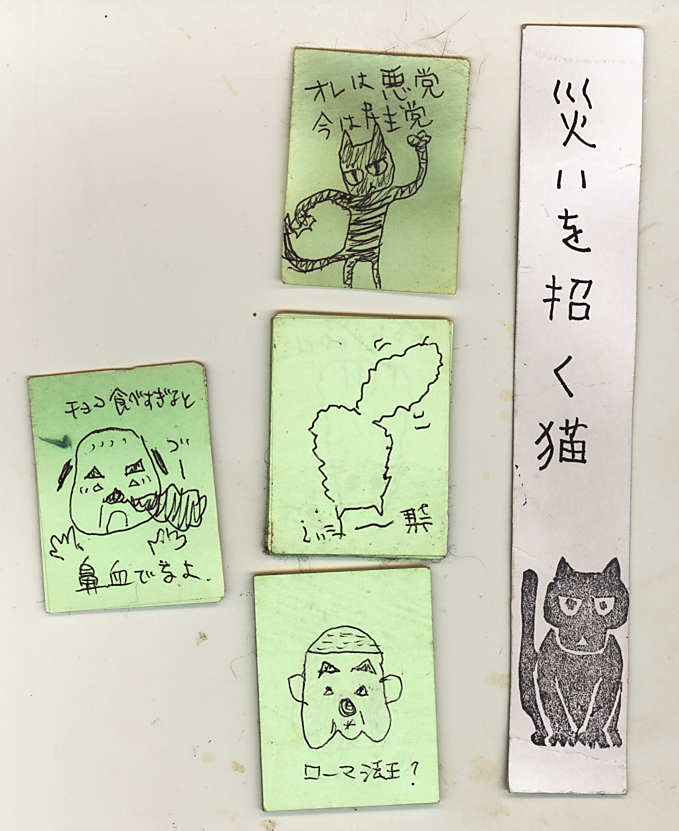 オレは悪党
今は民主党
災いを招く猫
チョコ食べすぎると
ゴー
鼻血でるよ.
ローマ法王?